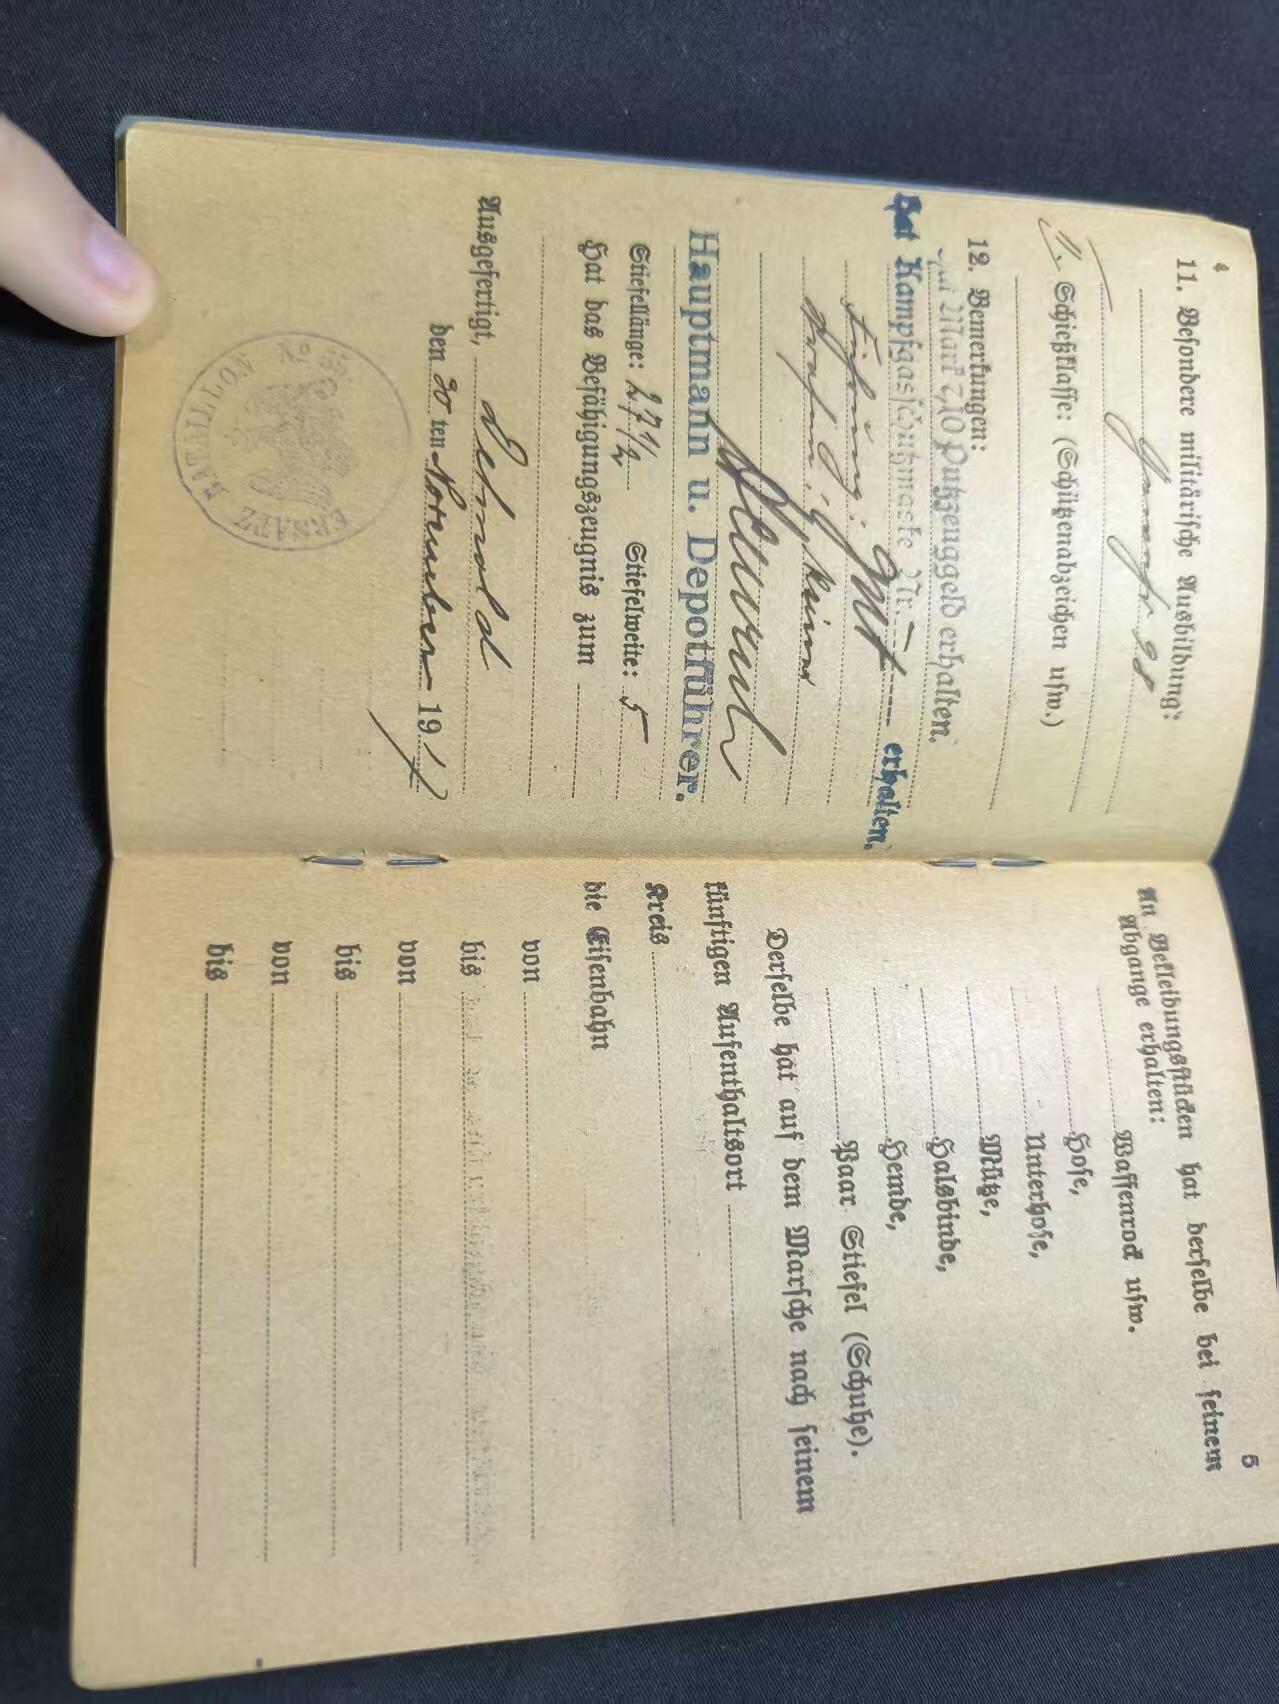 4
11. Besondere militärische Ausbildung:
98
II. Schießklasse: (Schützenabzeichen usw.)
12. Bemerkungen:
Hat Mark 7,10 Putzzeuggeld erhalten.
Hat Kampfgasschutzmaske Nr. erhalten.
Führung: Gut
Strafen: keine
Hauptmann u. Depotführer.
Stiefellänge: 27 1/2 Stiefelweite: 5
Hat das Befähigungszeugnis zum
Ausgefertigt, Detmold
den 30 ten November 1917
ERSATZ BATAILLON
5
An Bekleidungsstücken hat derselbe bei seinem
Abgange erhalten:
Waffenrock usw.
Hose,
Unterhose,
Mütze,
Halsbinde,
Hemde,
Paar Stiefel (Schuhe).
Derselbe hat auf dem Marsche nach seinem
künftigen Aufenthaltsort
Kreis
die Eisenbahn
von
bis
von
bis
von
bis